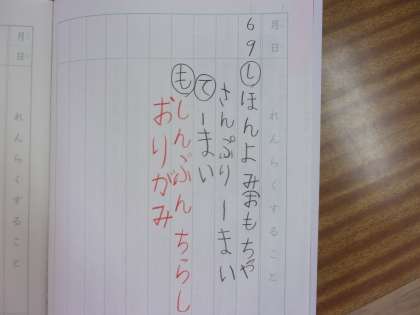 月 日 れんらくすること
6 9 しほんよみおもちゃ
さんぷり一まい
て一まい
もしんぶんちらし
おりがみ
月 日 れんらくすること